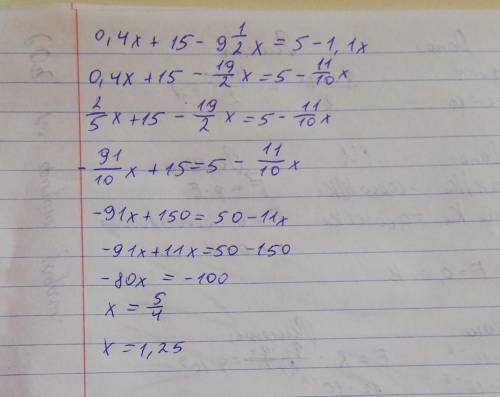 0,4x + 15 - 9 1/2 x = 5 - 1,1x
0,4x + 15 - 19/2 x = 5 - 11/10 x
2/5 x + 15 - 19/2 x = 5 - 11/10 x
- 91/10 x + 15 = 5 - 11/10 x
-91x + 150 = 50 - 11x
-91x + 11x = 50 - 150
-80x = -100
x = 5/4
x = 1,25